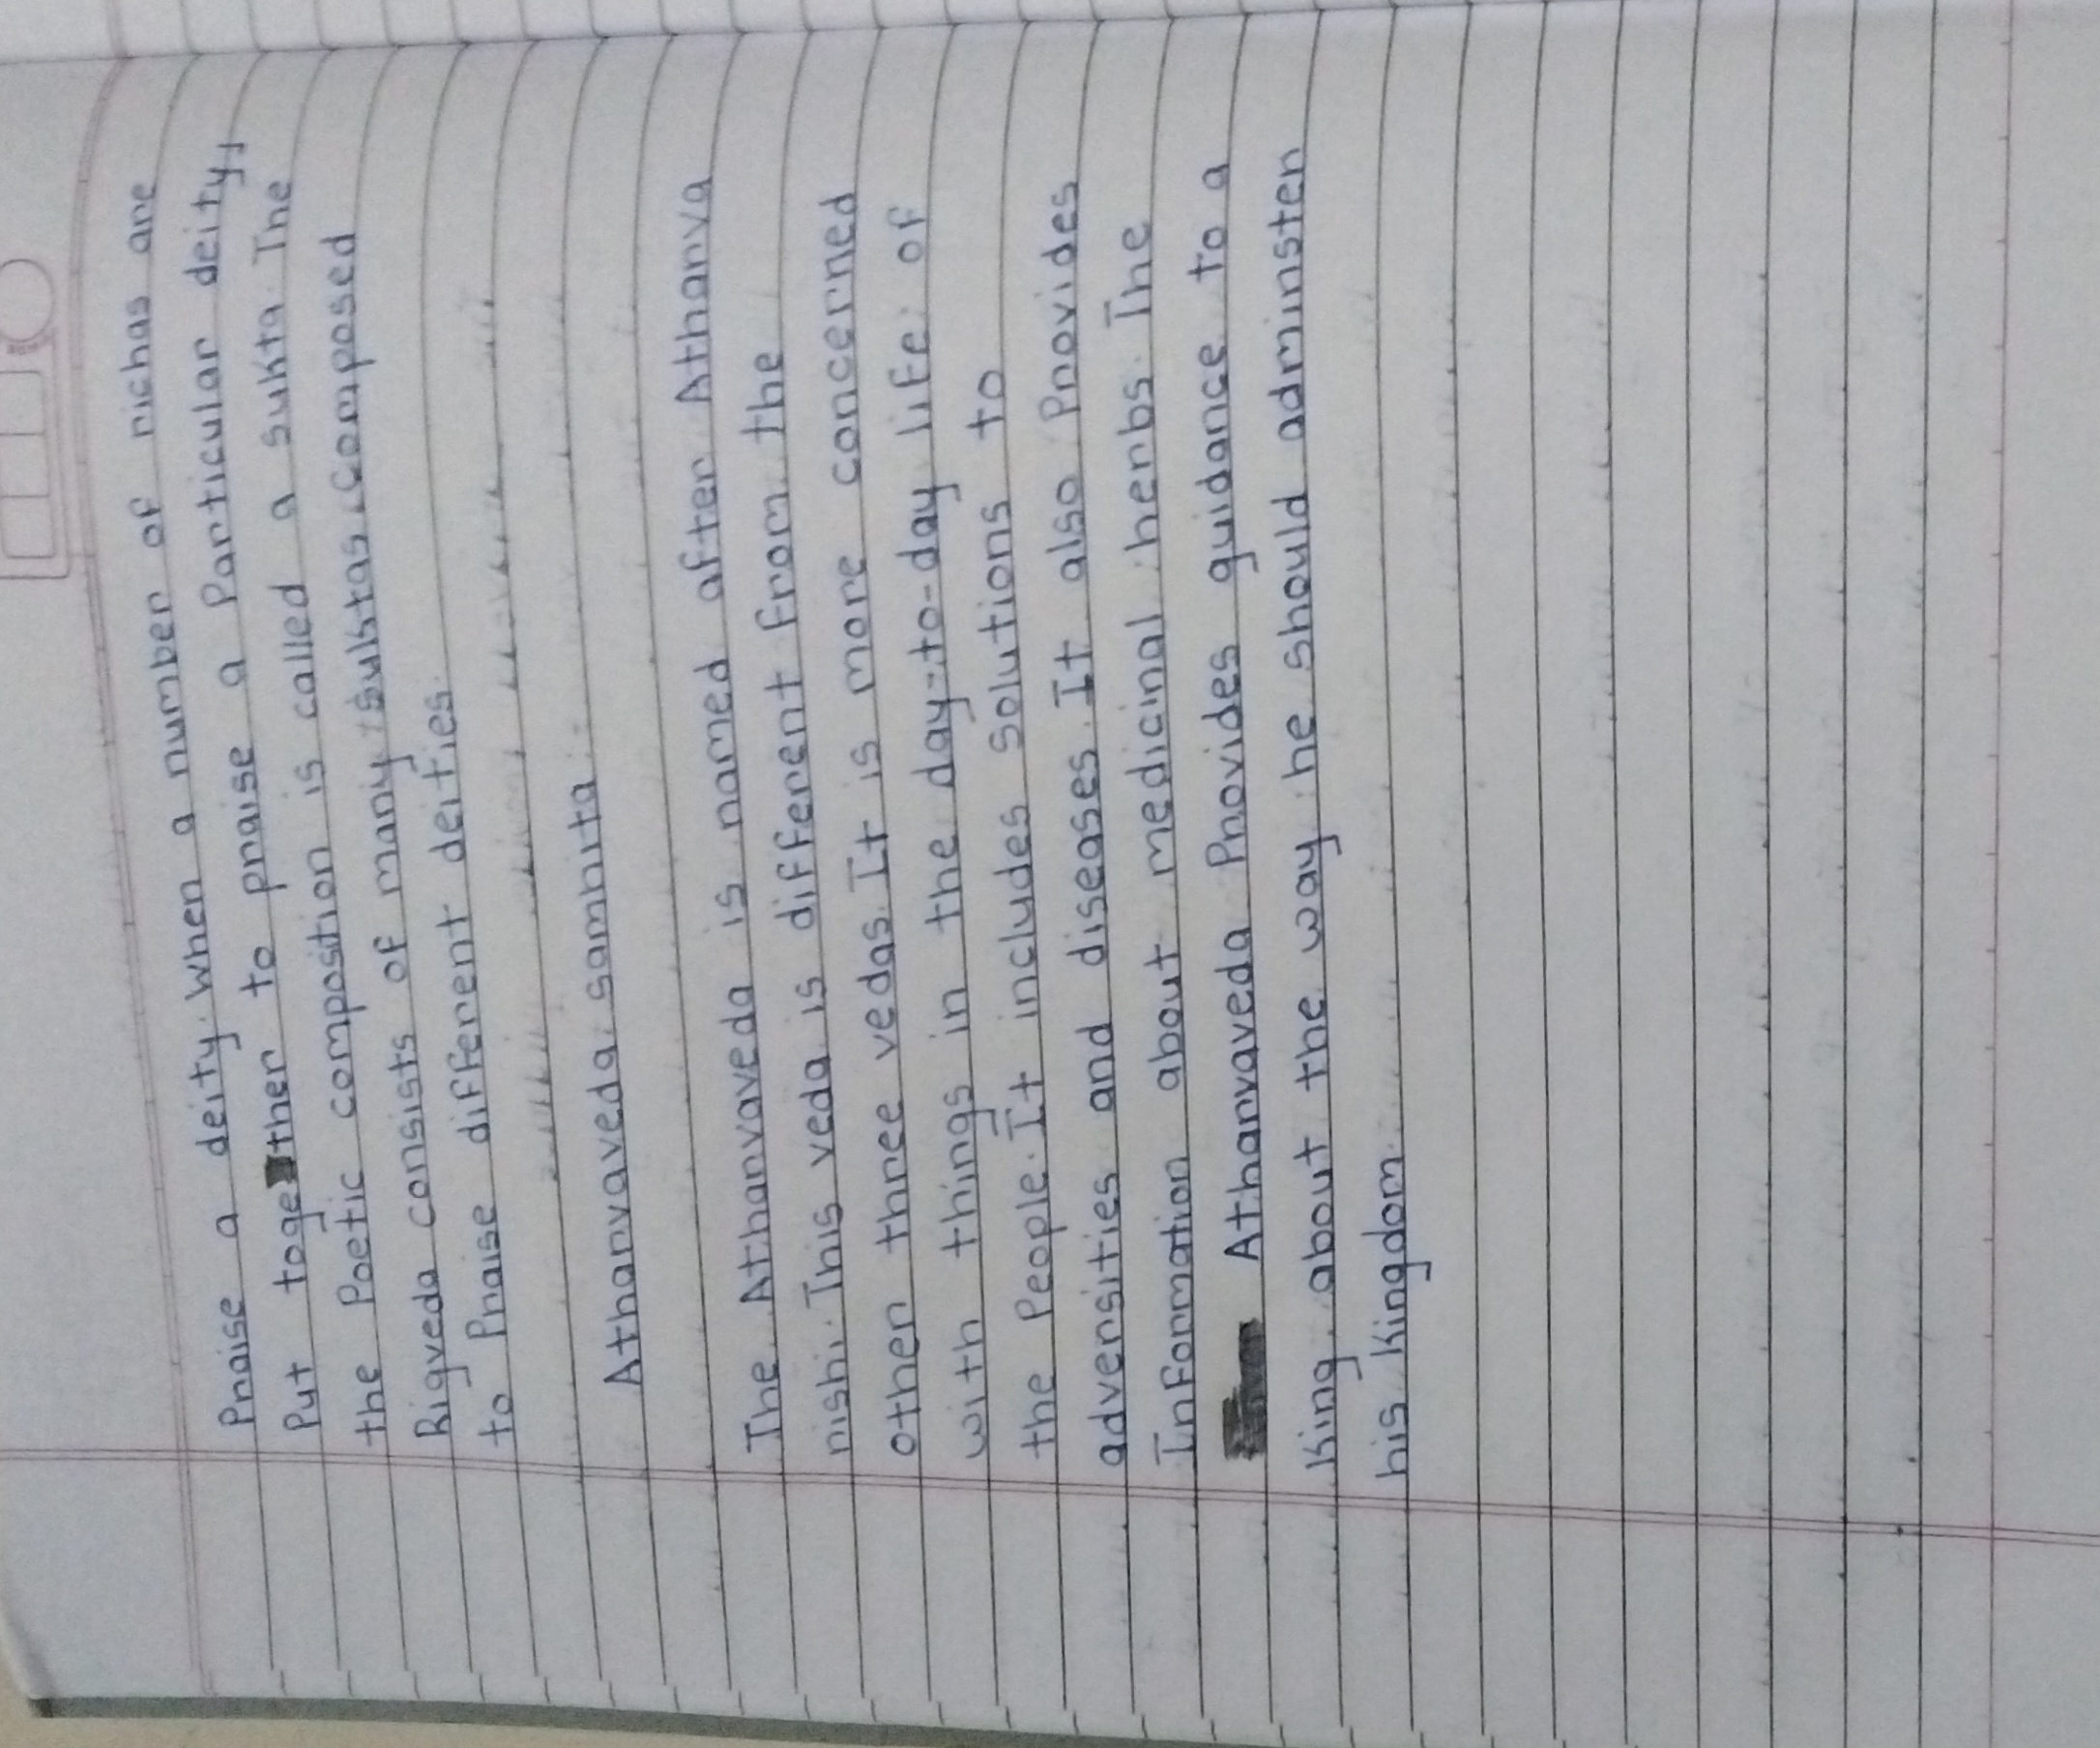 Praise a deity. When a number of richas are
Put together to praise a Particular deity,
the Poetic composition is called a sukta. The
Rigveda consists of many suktas, composed
to Praise different deities.
Atharvaveda samhita :
The Atharvaveda is named after Atharva
rishi. This veda is different from the
other three vedas. It is more concerned
with things in the day-to-day life of
the People. It includes solutions to
adversities and diseases. It also Provides
Information about medicinal herbs. The
Atharvaveda Provides guidance to a
King about the way he should adminster
his kingdom.